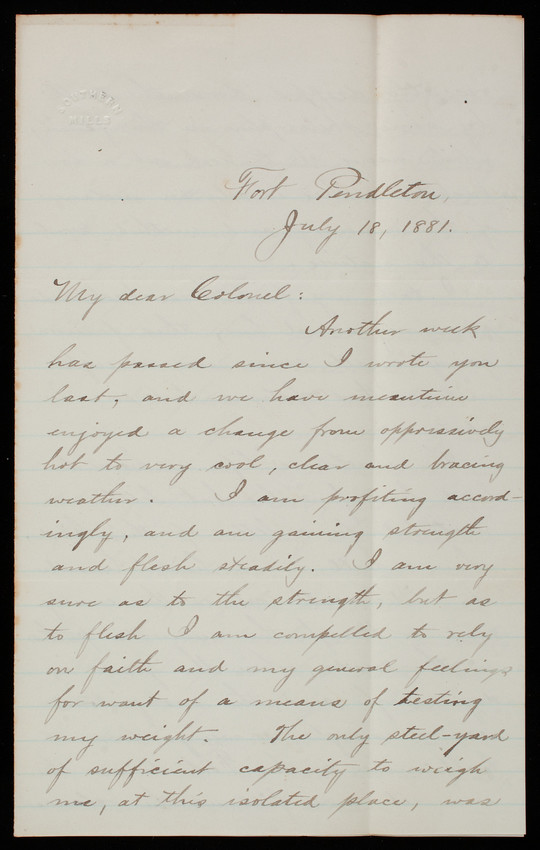 SOUTHERN
MILLS
Fort Pendleton,
July 18, 1881.
My dear Colonel:
Another week
has passed since I wrote you
last, and we have meantime
enjoyed a change from oppressively
hot to very cool, clear and bracing
weather. I am profiting accord-
ingly, and am gaining strength
and flesh steadily. I am very
sure as to the strength, but as
to flesh I am compelled to rely
on faith and my general feelings
for want of a means of testing
my weight. The only steel-yard
of sufficient capacity to weigh
me, at this isolated place, was